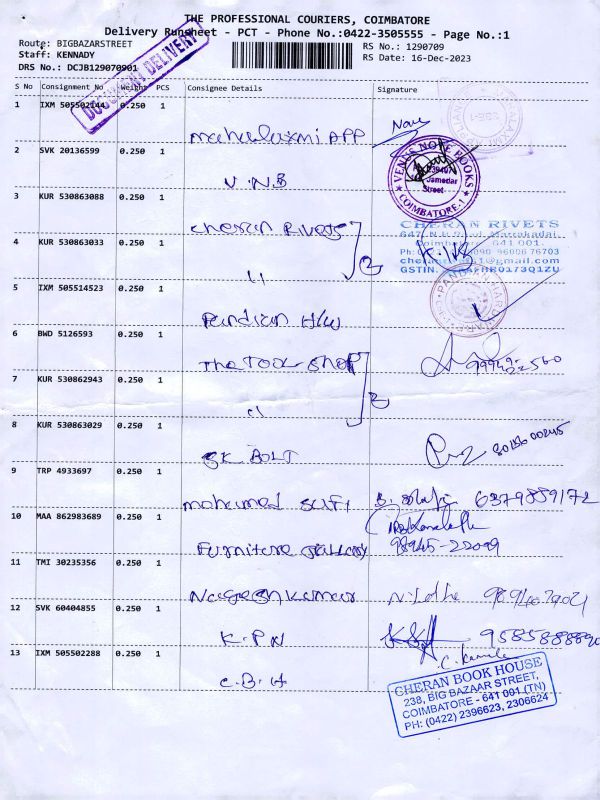 THE PROFESSIONAL COURIERS, COIMBATORE
Delivery Runsheet - PCT - Phone No.:0422-3505555 - Page No.:1
Route: BIGBAZARSTREET
RS No.: 1290709
Staff: KENNADY
RS Date: 16-Dec-2023
DRS No.: DCJB129070901
DOCUMENT DELIVERY
S No Consignment No Weight PCS Consignee Details Signature
1 IXM 505502144 0.250 1
Mahalaxmi APP
2 SVK 20136599 0.250 1
VENUS NOTE BOOKS
Jamedar
Street
COIMBATORE-1
V.N.B
3 KUR 530863088 0.250 1
Cheran Rivets
CHERAN RIVETS
4 KUR 530863033 0.250 1
Coimbatore - 641 001.
GSTIN.
11 2
5 IXM 505514523 0.250 1
Pandian H/W
6 BWD 5126593 0.250 1
The Tool Shop
7 KUR 530862943 0.250 1
11 2
8 KUR 530863029 0.250 1
SK BOLT
9 TRP 4933697 0.250 1
mohamed Sufi 6379859172
10 MAA 862983689 0.250 1
Furniture Gallery 98945-22099
11 TMI 30235356 0.250 1
Nageshkumar
12 SVK 60404855 0.250 1
K.P.N 9585888890
13 IXM 505502288 0.250 1
C.B.H
CHERAN BOOK HOUSE
238, BIG BAZAAR STREET,
COIMBATORE - 641 001 (TN)
PH: (0422) 2396623, 2306624